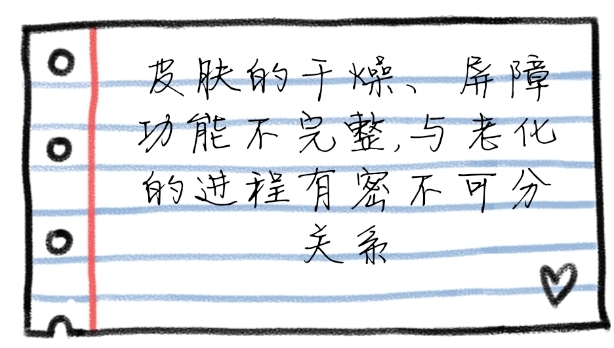 皮肤的干燥、屏障
功能不完整,与老化
的进程有密不可分
关系